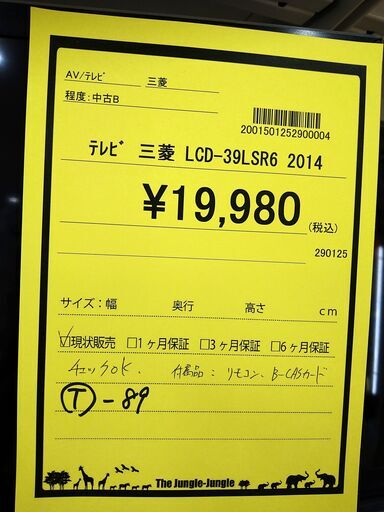 AV/ﾃﾚﾋﾞ 三菱
程度:中古B
2001501252900004
ﾃﾚﾋﾞ 三菱 LCD-39LSR6 2014
¥19,980
(税込)
290125
サイズ:幅 奥行 高さ cm
☑現状販売 □1ヶ月保証 □3ヶ月保証 □6ヶ月保証
チェックOK. 付属品:リモコン、B-CASカード
Ⓣ-89
The Jungle-Jungle